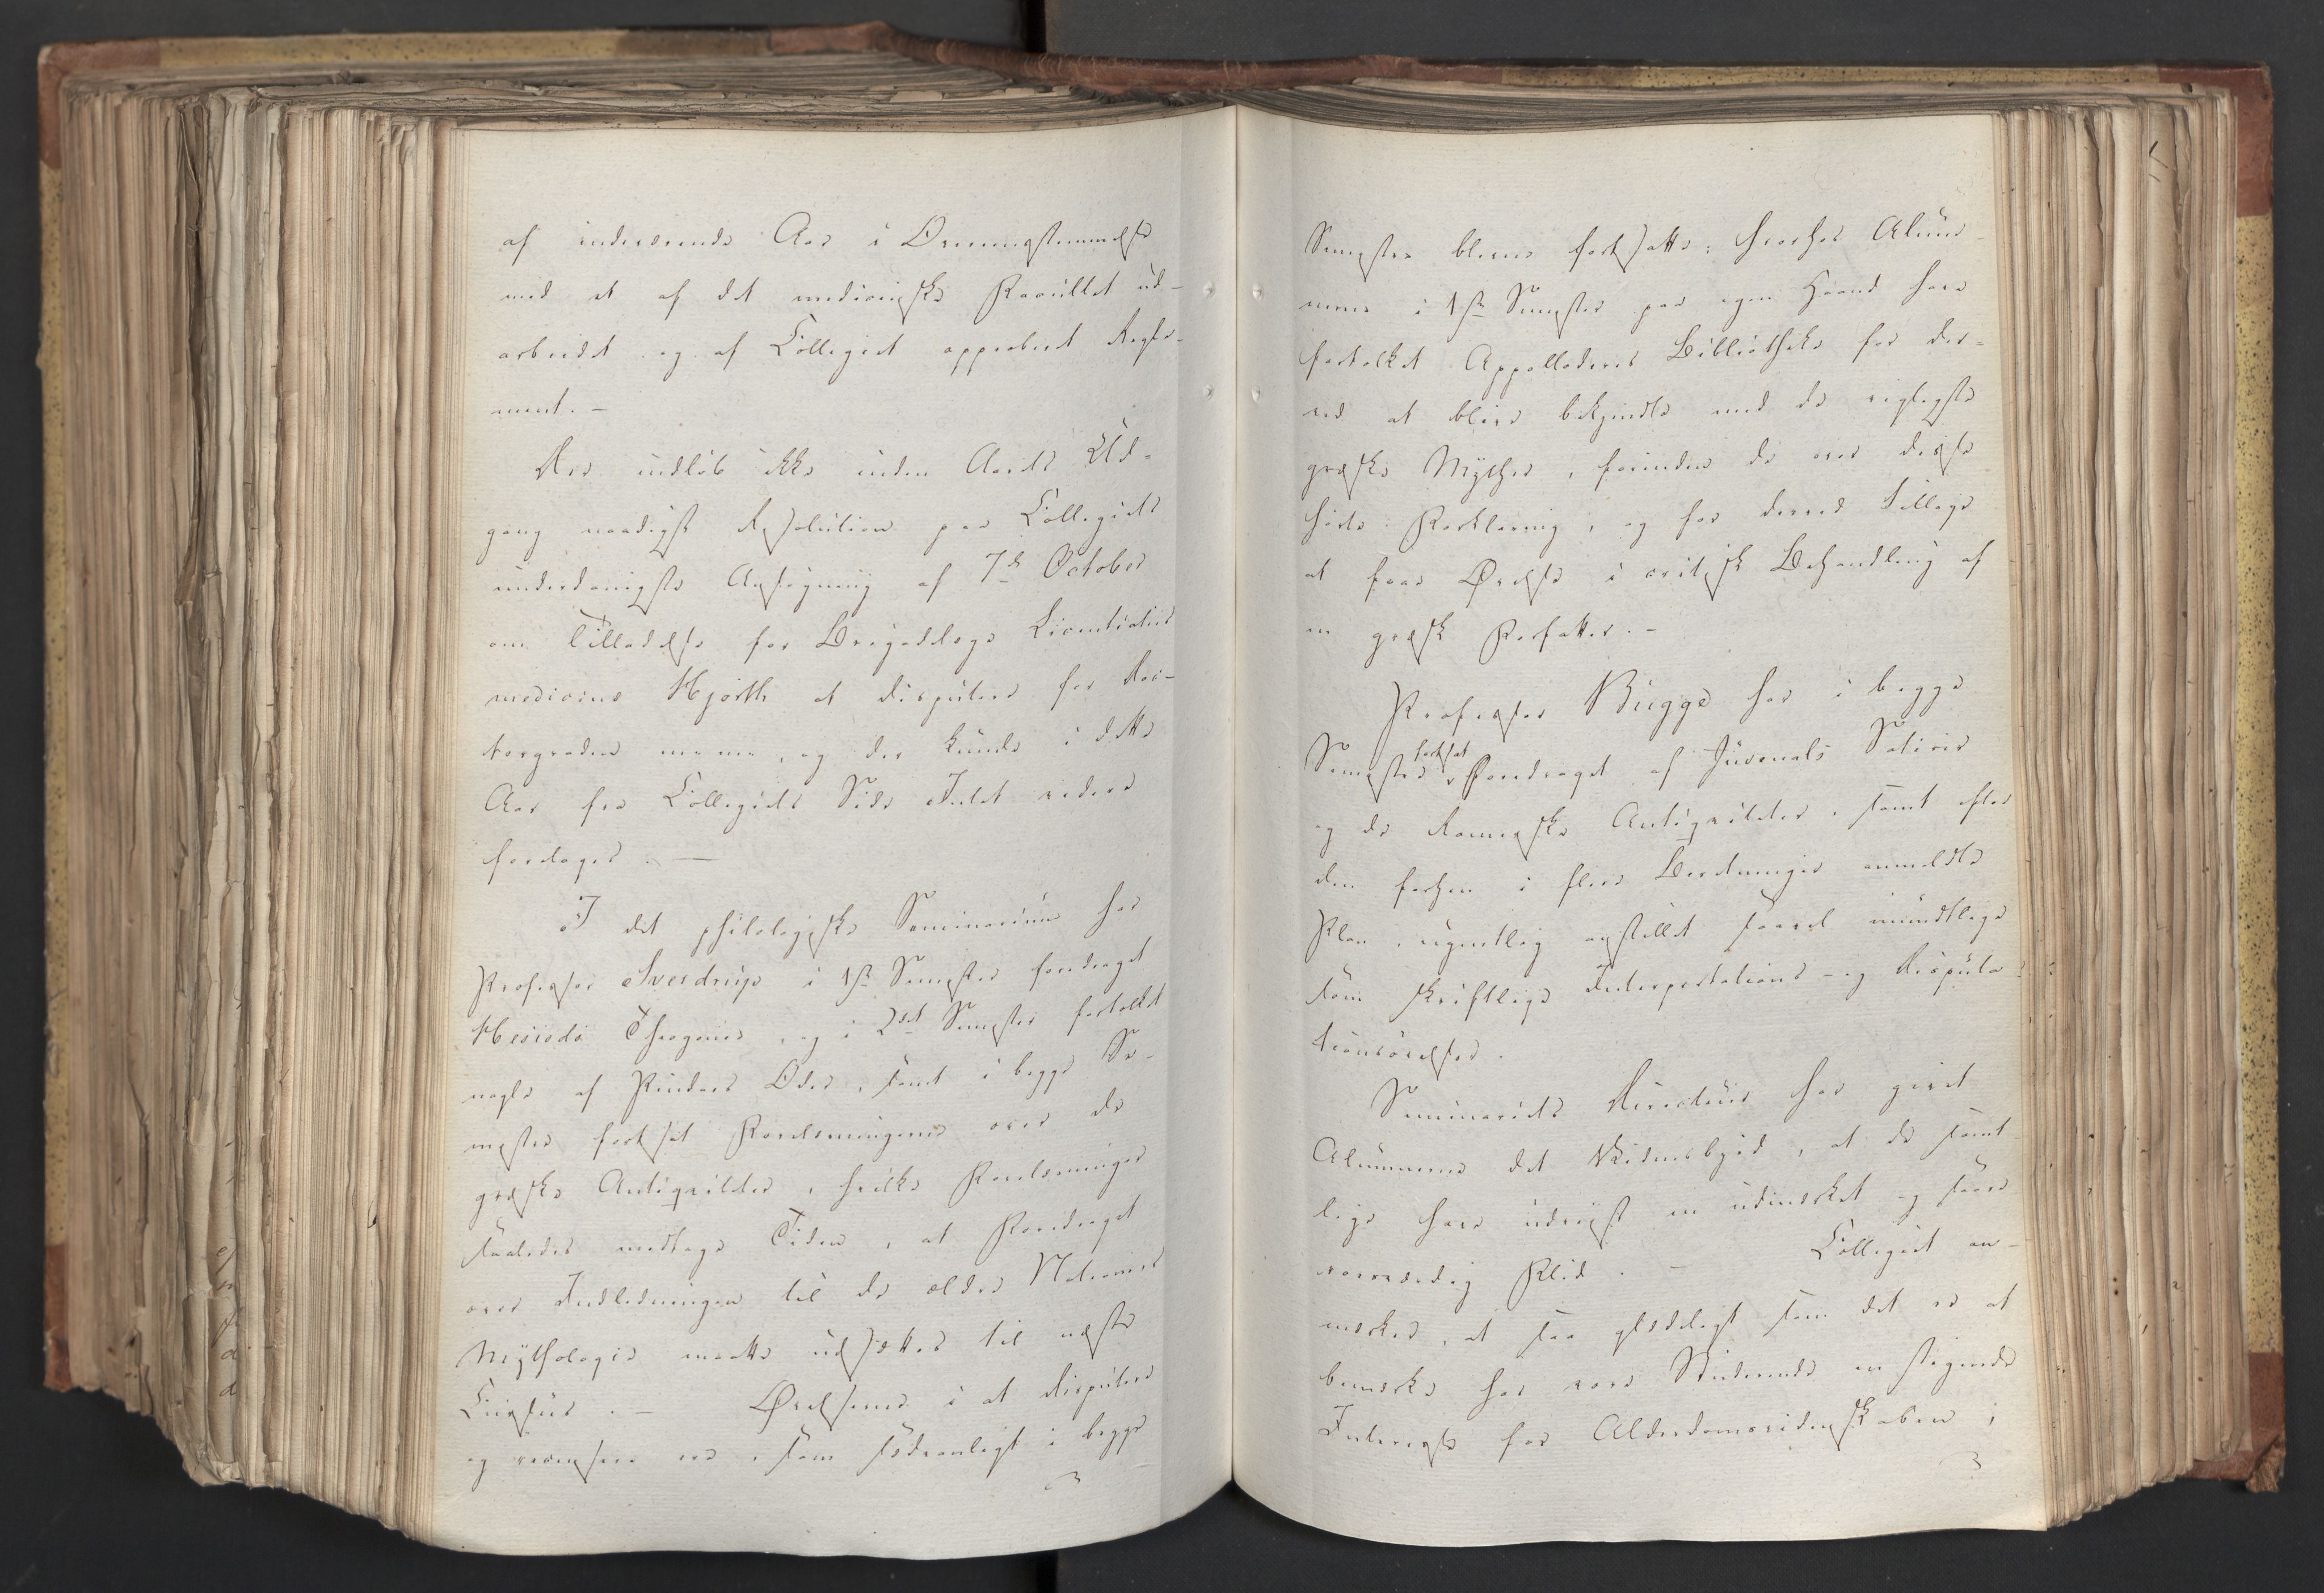 af indeværende Aar i Overensstemmelse
med et af det medicinske Facultet ud-
arbeidet og af Collegiet approberet Regle-
ment. –
Der indløb ikke inden Aarets Ud-
gang naadigst Resolution paa Collegiets
underdanigste Ansøgning af 7de October
om Tilladelse for Brigadelæge Licentiatus
medicinæ Hjorth at disputere for Doc-
torgraden m: m:, og der kunde i dette
Aar fra Collegiets Side Intet videre
foretages. –
I det philologiske Seminarium har
Professor Sverdrup i 1ste Semester foredraget
Hesiods Theogonie, og i 2det Semester fortolket
nogle af Pindars Oder, samt i begge Se-
mestre fortsat Forelæsningerne over de
græske Antiqviteter, hvilke Forelæsninger
saaledes medtoge Tiden, at Foredraget
over Indledningen til de ældre Nationers
Mythologie maatte udsættes til næste
Cursus. – Øvelserne i at disputere
og censere ere, som sædvanligt i begge
Semestre blevne fortsatte; hvorhos Alum-
nerne i 1ste Semester paa egen Haand have
fortolket Appollodors Bibliothek for der-
ved at blive bekjendte med de vigtigste
græske Myther, forinden de over disse
hørte Forklaring, og for derved tillige
at faae Øvelse i critisk Behandling af
en græsk Forfatter. –
Professor Bugge har i begge
Semestre fortsat Foredraget af Juvenals Satirer
og de Romerske Antiqviteter, samt efter
den forhen i flere Beretninger anmeldte
Plan, ugentlig anstillet saavel mundtlige
som skriftlige Interpretations- og Disputa-
tionsøvelser.
Seminariets Directeur har givet
Alumnerne det Vidnesbyrd, at de samt-
lige have udviist en udmærket og saare
roesværdig Flid. – Collegiet an-
mærker, at saa glædeligt som det er at
bemærke hos vore Studerende en stigende
Interesse for Oldtidsvidenskaben i